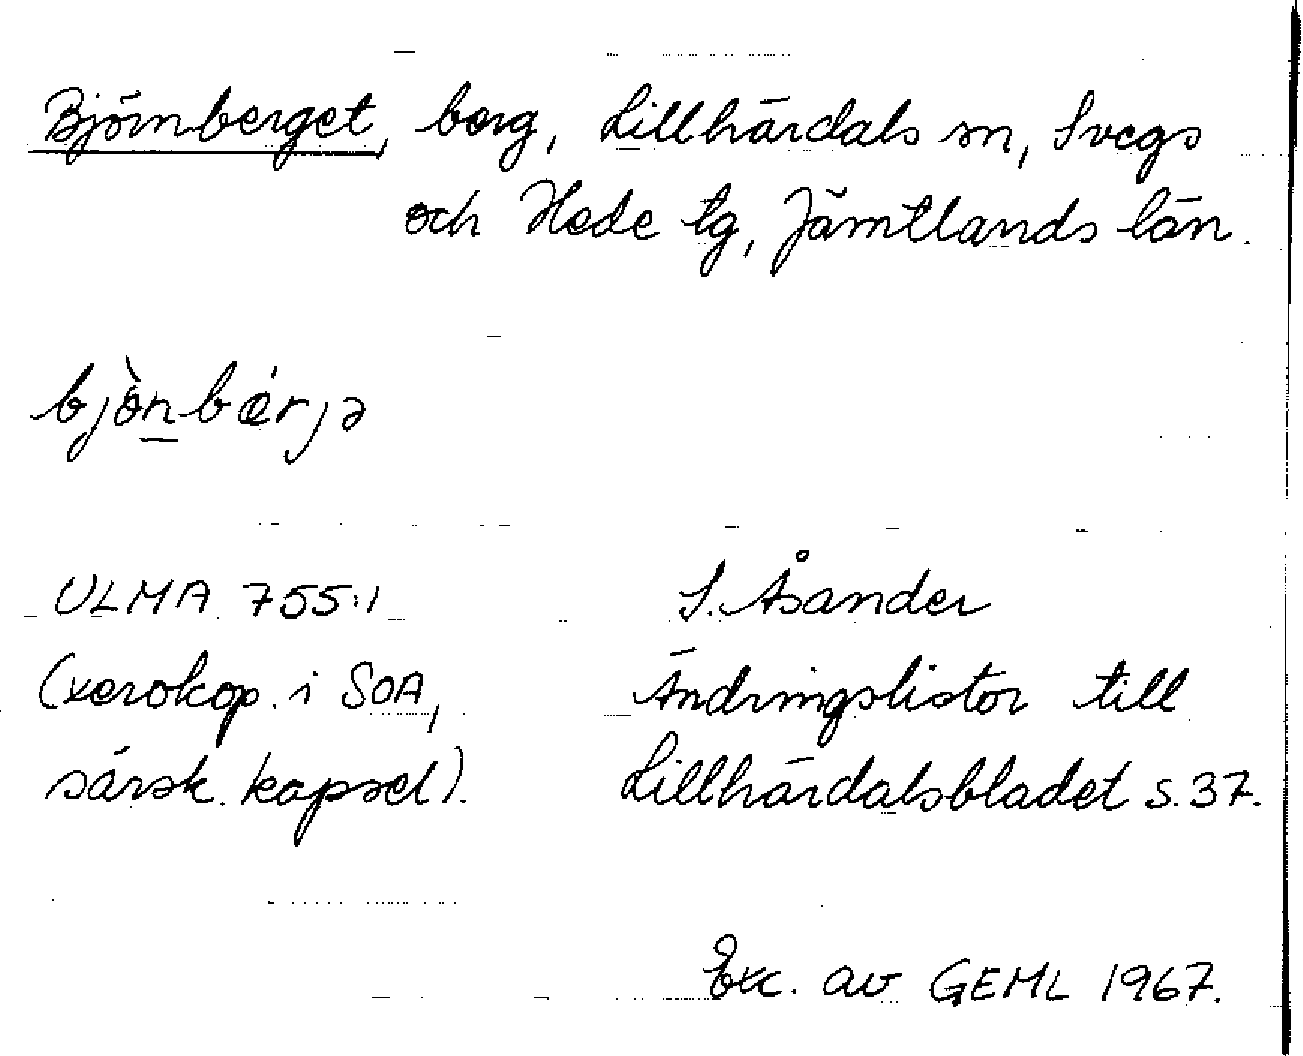 Björnberget, berg, Lillhärdals sn, Svegs
och Hede tg, Jämtlands län.
bjò̱nbǽrjə
ULMA 755:1
(xerokop. i SOA,
särsk. kapsel).
S. Åsander
Ändringslistor till
Lillhärdalsbladet s. 37.
Exc. av GEML 1967.